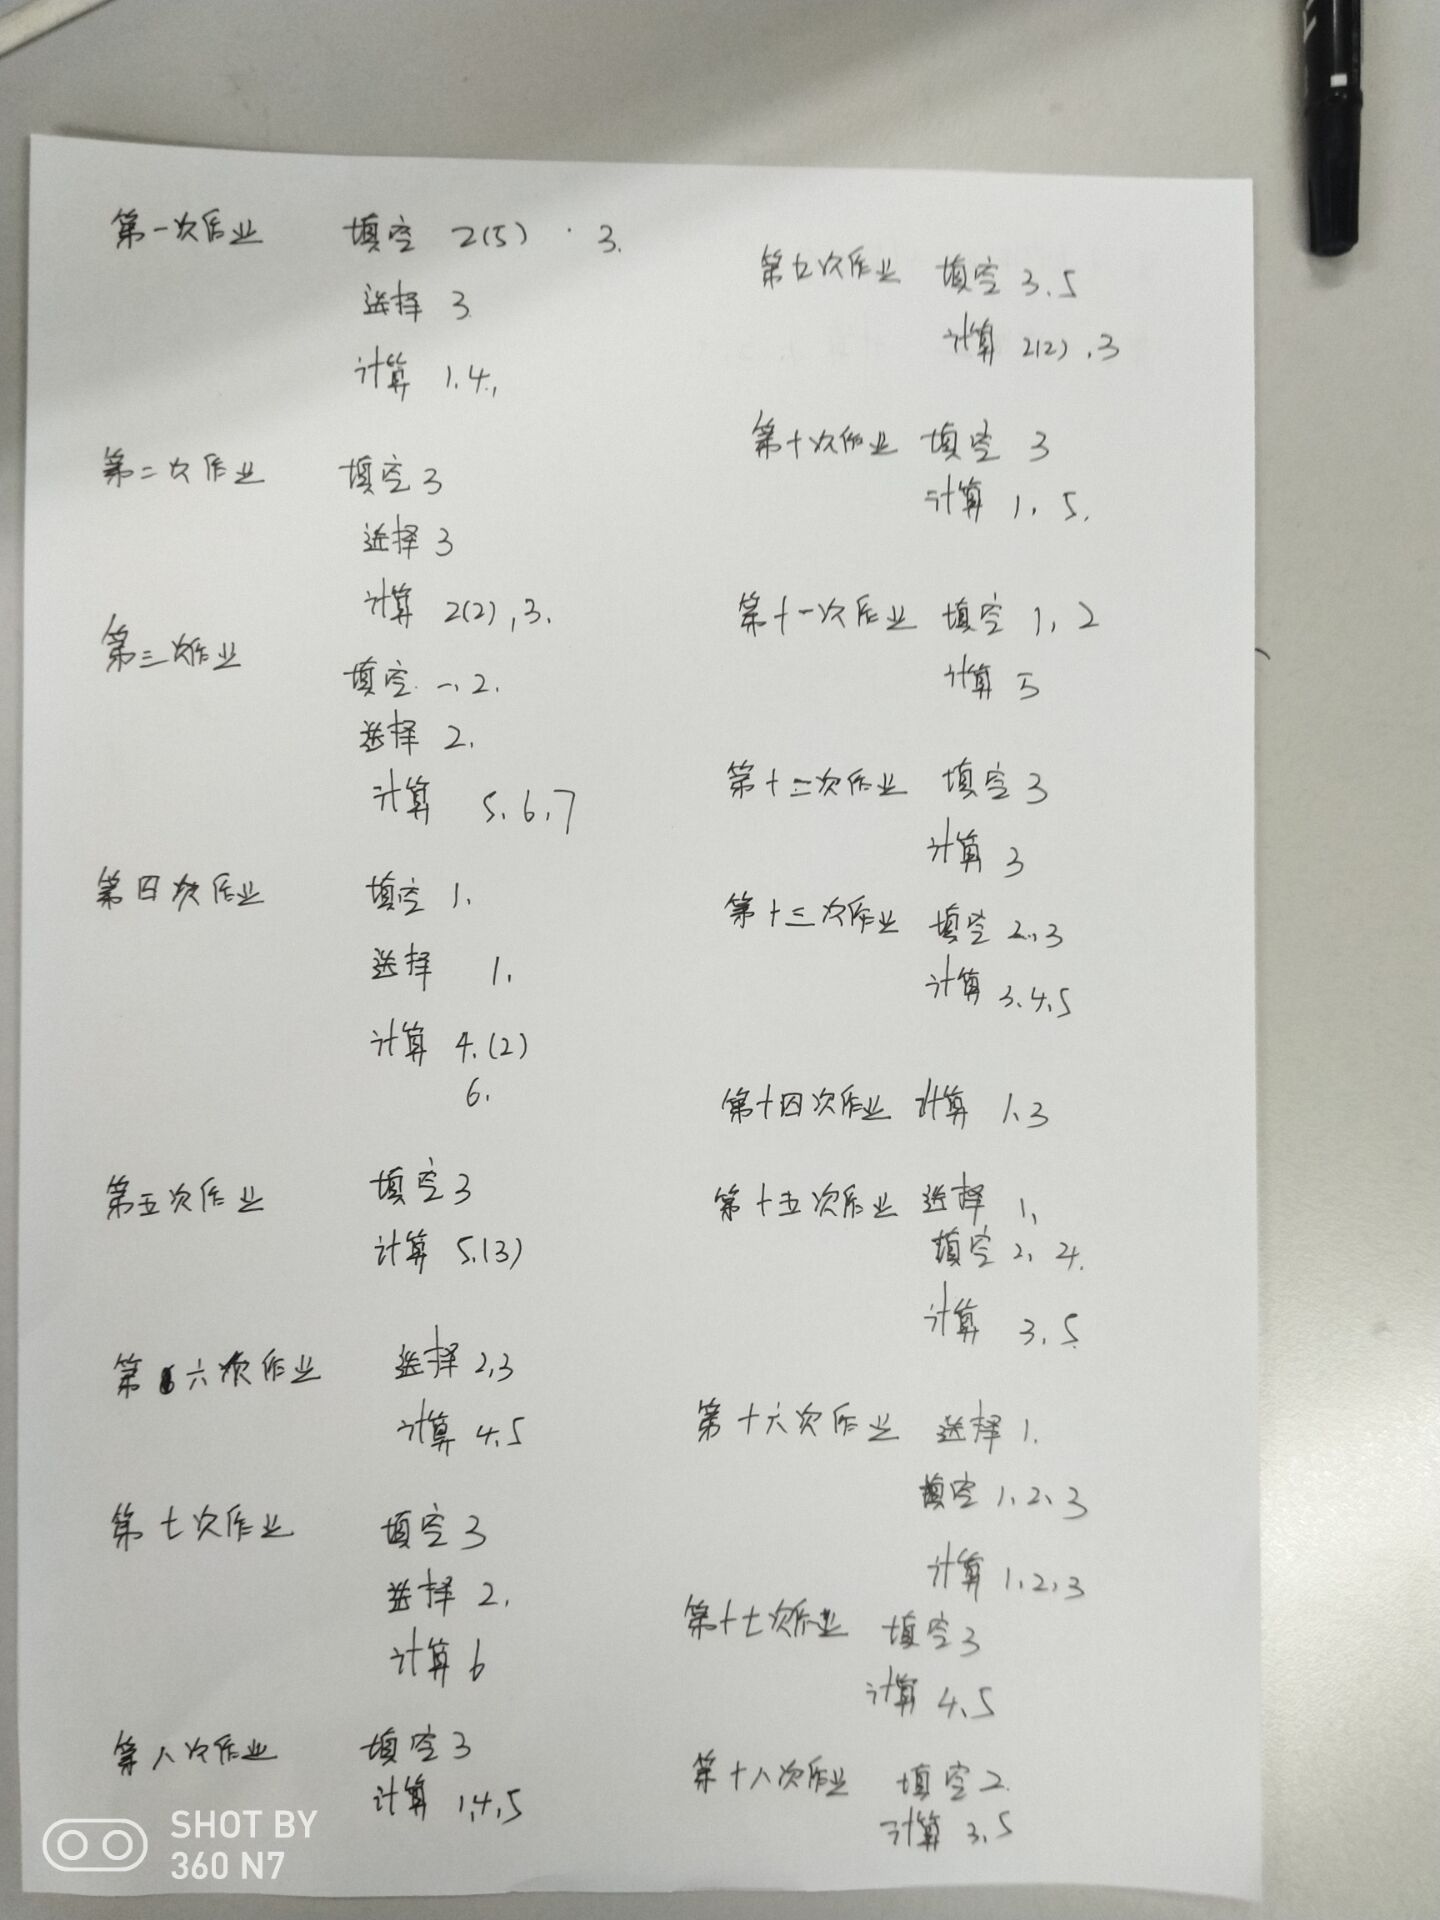 第一次作业 填空 2(5) · 3.
选择 3
计算 1.4.,
第二次作业 填空 3
选择 3
计算 2(2),3.
第三次作业
填空 一、2.
选择 2.
计算 5、6、7
第四次作业 填空 1.
选择 1.
计算 4.(2)
6.
第五次作业 填空 3
计算 5.(3)
第六次作业 选择 2,3
计算 4、5
第七次作业 填空 3
选择 2.
计算 6
第八次作业 填空 3
计算 1,4,5
第九次作业 填空 3、5
计算 2(2),3
第十次作业 填空 3
计算 1, 5.
第十一次作业 填空 1, 2
计算 5
第十二次作业 填空 3
计算 3
第十三次作业 填空 2、3
计算 3、4、5
第十四次作业 计算 1、3
第十五次作业 选择 1,
填空 2, 4.
计算 3、5
第十六次作业 选择 1.
填空 1、2、3
计算 1、2、3
第十七次作业 填空 3
计算 4、5
第十八次作业 填空 2.
计算 3、5
SHOT BY
360 N7